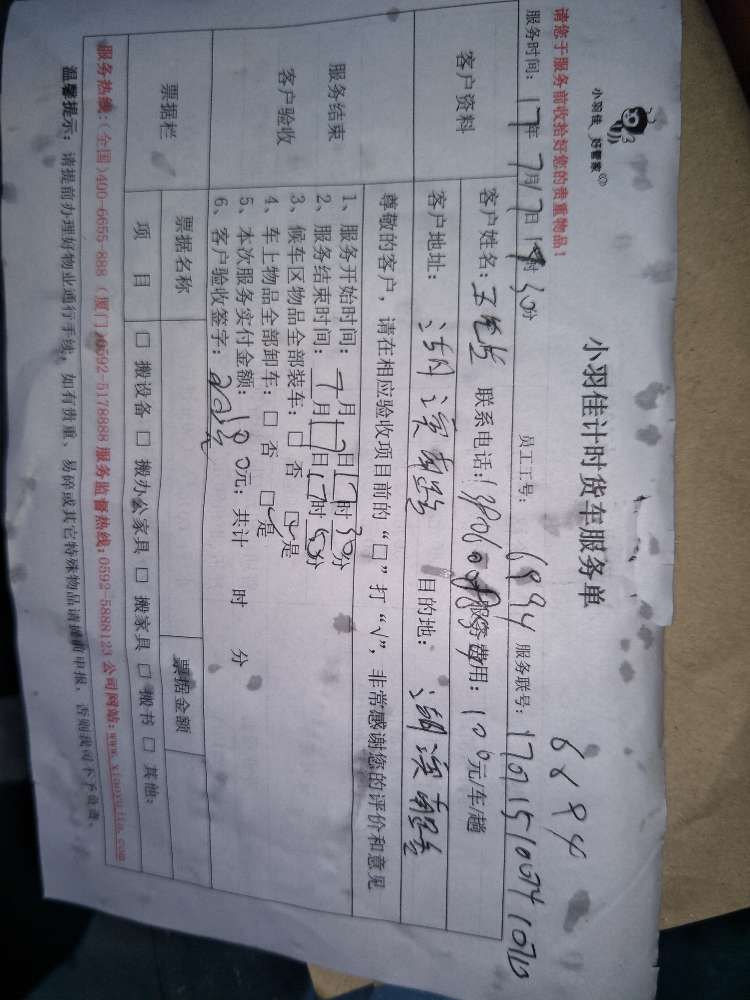 小羽佳 好管家
小羽佳计时货车服务单
6894
请您于服务前收拾好您的贵重物品！
服务时间： 17年 7月17日 时30分 员工工号： 6894 服务联号：
客户资料
客户姓名： 联系电话： 服务费用：100元/车/趟
客户地址： 目的地：
服务结束
客户验收
尊敬的客户，请在相应验收项目前的“□”打“√”，非常感谢您的评价和意见
1、服务开始时间： 7月17日17时30分
2、服务结束时间： 7月17日17时50分
3、候车区物品全部装车： □ 否 □是
4、车上物品全部卸车： □ 否 □是
5、本次服务实付金额： 元；共计 时 分
6、客户验收签字：
票据栏
票据名称 票据金额
项 目 □ 搬设备 □ 搬办公家具 □ 搬家具 □ 搬书 □ 其他：
服务热线：（全国）400-6655-888（厦门）0592-5178888 服务监督热线：0592-5888123 公司网站：www.xiaoyujia.com
温馨提示：请提前办理好物业通行手续，如有贵重、易碎或其它特殊物品请提前申报，否则我司不予负责。